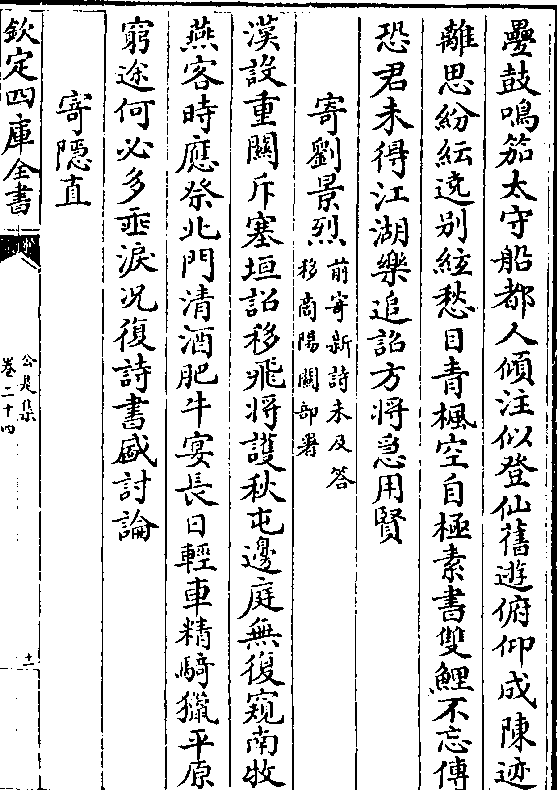 疊鼓鳴笳太守船都人傾注似登仙舊遊俯仰成陳迹
離思紛紜遶别絃愁目青楓空自極素書雙鯉不忘傳
恐君未得江湖樂追詔方將急用賢
寄劉景烈
前寄新詩未及答
移高陽關部署
漢設重關斥塞垣詔移飛將護秋屯邊庭無復窺南牧
燕客時應祭北門清酒肥牛宴長日輕車精騎獵平原
窮途何必多垂淚况復詩書盛討論
寄隱直
欽定四庫全書
公是集
卷二十四
十一